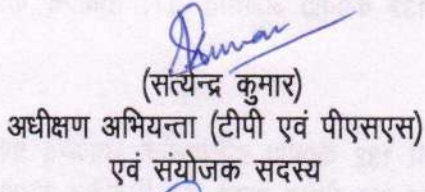 Kumar
(सत्येन्द्र कुमार)
अधीक्षण अभियन्ता (टीपी एवं पीएसएस)
एवं संयोजक सदस्य